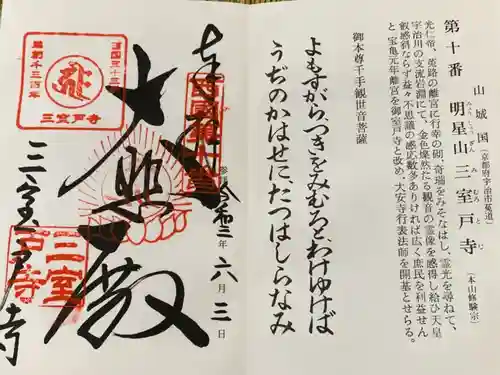 第十番 山城国（京都府宇治市菟道）
明星山三室戸寺（本山修験宗）
みょうじょうざん みむろとじ
光仁帝、菟路の離宮に行幸の砌、奇瑞をみそなはし、霊光を尋ねて、
宇治川の支流岩淵にて、金色燦然たる観音の霊像を感得し給ひ天皇
叡感斜ならず益々不思議の感応数多ありければ広く庶民を利益せん
と宝亀元年離宮を御室戸寺と改め、大安寺行表法師を開基とせらる。
御本尊千手観世音菩薩
よもすがら、つきをみむろと、わけゆけば
うぢのかはせに、たつはしらなみ
奉拝
令和三年六月三日
大悲殿
三室戸寺
西国三十三
三室戸寺
三室
戸寺